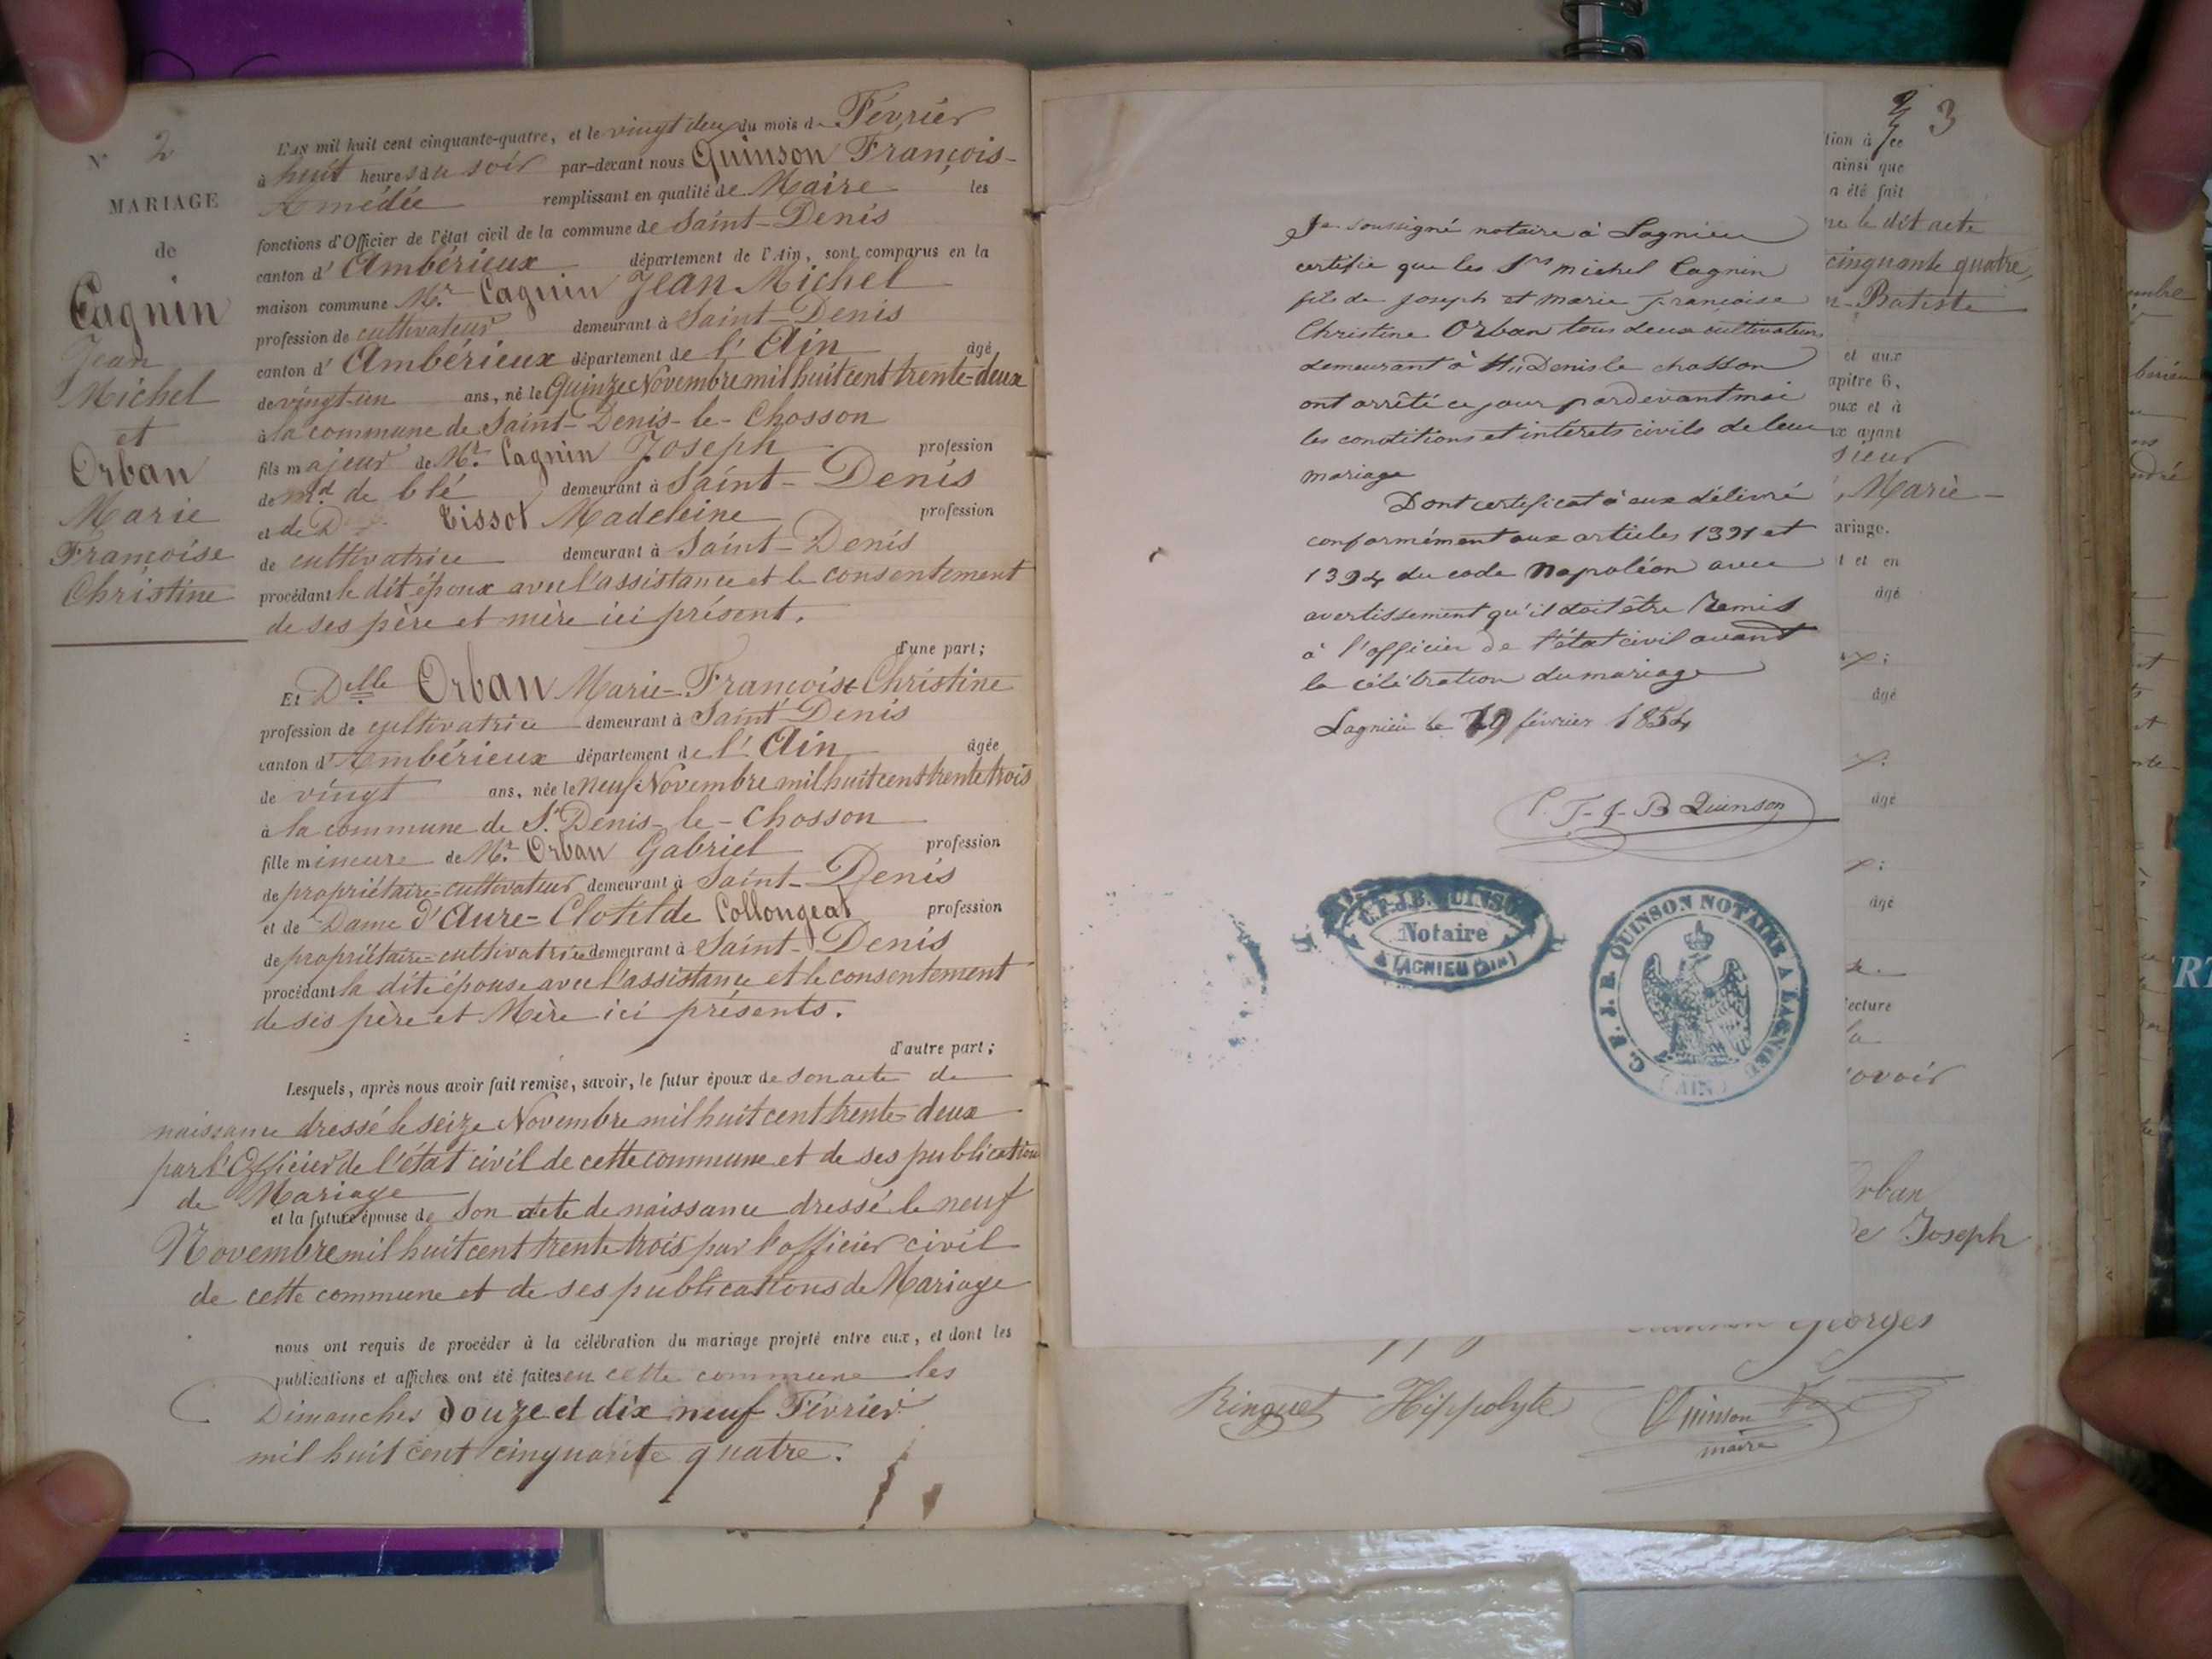 N° 2
MARIAGE
de
Cagnin
Jean
Michel
et
Orban
Marie
Françoise
Christine
L'AN mil huit cent cinquante-quatre, et le vingt deux du mois de Février
à huit heures du soir par-devant nous Quinson François-
Amédée remplissant en qualité de Maire les
fonctions d'Officier de l'état civil de la commune de Saint-Denis
canton d'Ambérieux département de l'Ain, sont comparus en la
maison commune Mr. Cagnin Jean Michel
profession de cultivateur demeurant à Saint-Denis
canton d'Ambérieux département de l'Ain âgé
de vingt-un ans, né le Quinze Novembre mil huit cent trente-deux
à la commune de Saint-Denis-le-Chosson
fils majeur de Mr. Cagnin Joseph profession
de md de blé demeurant à Saint-Denis
et de D Tissot Madeleine profession
de cultivatrice demeurant à Saint-Denis
procédant le dit époux avec l'assistance et le consentement
de ses père et mère ici présent.
d'une part;
Et Delle Orban Marie-Françoise Christine
profession de cultivatrice demeurant à Saint Denis
canton d'Ambérieux département de l'Ain âgée
de vingt ans, née le neuf Novembre mil huit cent trente trois
à la commune de St Denis-le-Chosson
fille mineure de Mr. Orban Gabriel profession
de propriétaire-cultivateur demeurant à Saint-Denis
et de Dame d'Aure-Clotilde Collongeat profession
de propriétaire-cultivatrice demeurant à Saint-Denis
procédant la dite épouse avec l'assistance et le consentement
de ses père et Mère ici présents.
d'autre part;
Lesquels, après nous avoir fait remise, savoir, le futur époux de son acte de
naissance dressé le seize Novembre mil huit cent trente-deux
par l'Officier de l'état civil de cette commune et de ses publications
de Mariage
et la future épouse de son acte de naissance dressé le neuf
Novembre mil huit cent trente trois par l'officier civil
de cette commune et de ses publications de Mariage
nous ont requis de procéder à la célébration du mariage projeté entre eux, et dont les
publications et affiches ont été faites en cette commune les
Dimanches douze et dix neuf Février
mil huit cent cinquante quatre.
Je soussigné notaire à Lagnieu
certifie que les Srs michel Cagnin
fils de joseph et marie françoise
Christine Orban tous deux cultivateurs
demeurant à St Denis le chosson
ont arrêté ce jour pardevant moi
les conditions et intérets civils de leur
mariage
Dont certificat à eux délivré
conformément aux articles 1391 et
1394 du code Napoléon avec
avertissement qu'il doit être remis
à l'officier de l'état civil avant
la célébration du mariage
Lagnieu le 19 février 1854
C. F-J-B Quinson
C.F.J.B. QUINSON
Notaire
à LAGNIEU (AIN)
C. F. J. B. QUINSON NOTAIRE A LAGNIEU
(AIN)
3
ainsi que
a été fait
le dit acte
cinquante quatre,
Batiste
et aux
apitre 6,
oux et à
ayant
sieur
Marie-
ariage.
t et en
âgé
âgé
âgé
âgé
ecture
la
Orban
Joseph
Georges
Ringuet Hippolyte Quinson
maire